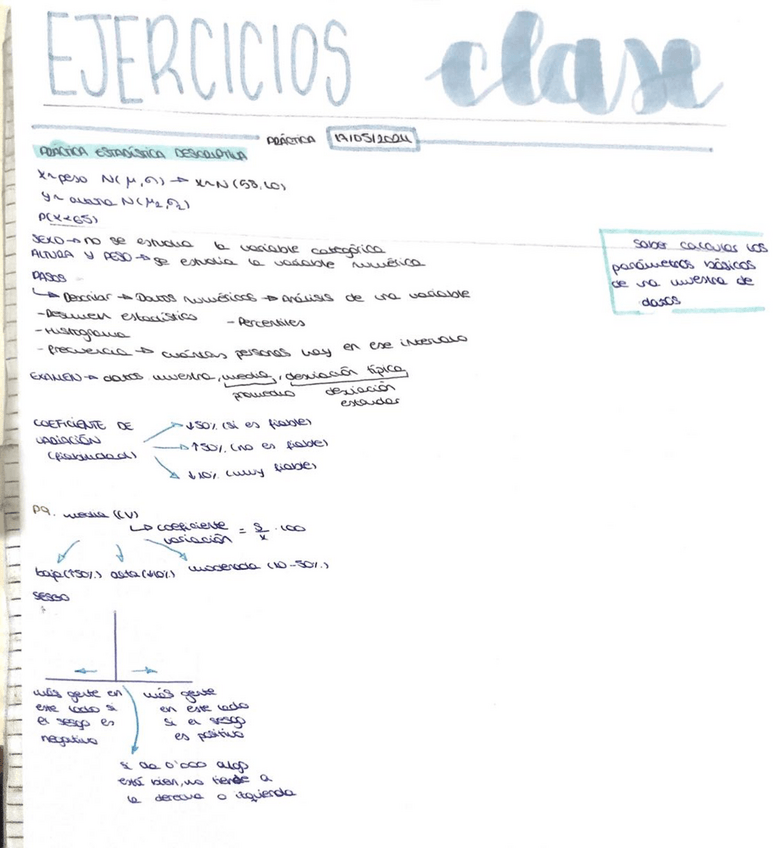 EJERCICIOS clase
PRÁCTICA 17/05/2024
PRÁCTICA ESTADÍSTICA DESCRIPTIVA
x~peso N(μ,σ) → x~N(58,10)
y~ altura N(μ2,σ2)
P(x<65)
SEXO → no se estudia la variable categórica
ALTURA Y PESO → se estudia la variable numérica
PASOS
↳ Describir → Datos numéricos → Análisis de una variable
-Resumen estadístico -Percentiles
-Histograma
-Frecuencia → cuántas personas hay en ese intervalo
EXAMEN → datos muestra, media, desviación típica
promedio desviación
estandar
saber calcular los
parámetros básicos
de una muestra de
datos
COEFICIENTE DE
VARIACIÓN
(fiabilidad)
↓50% (si es fiable)
↑50% (no es fiable)
↓10% (muy fiable)
P9. media (CV)
↳ coeficiente
variación = s/x · 100
baja(↑50%) alta(↓10%) moderada (10-50%)
SESGO
← →
más gente en
este lado si
el sesgo es
negativo
más gente
en este lado
si el sesgo
es positivo
si da 0'000 algo
está bien, no tiende a
la derecha o izquierda